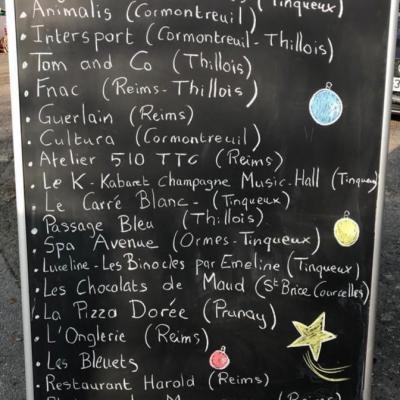 (Tinqueux)
• Animalis (Cormontreuil)
• Intersport (Cormontreuil-Thillois)
• Tom and Co (Thillois)
• Fnac (Reims-Thillois)
• Guerlain (Reims)
• Cultura (Cormontreuil)
• Atelier 510 TTC (Reims)
• Le K-Kabaret Champagne Music-Hall (Tinqueux)
• Le Carré Blanc - (Tinqueux)
• Passage Bleu (Thillois)
• Spa Avenue (Ormes-Tinqueux)
• Luceline-Les Binocles par Emeline (Tinqueux)
• Les Chocolats de Maud (St Brice Courcelles)
• La Pizza Dorée (Prunay)
• L'Onglerie (Reims)
• Les Bleuets
• Restaurant Harold (Reims)
(Reims)